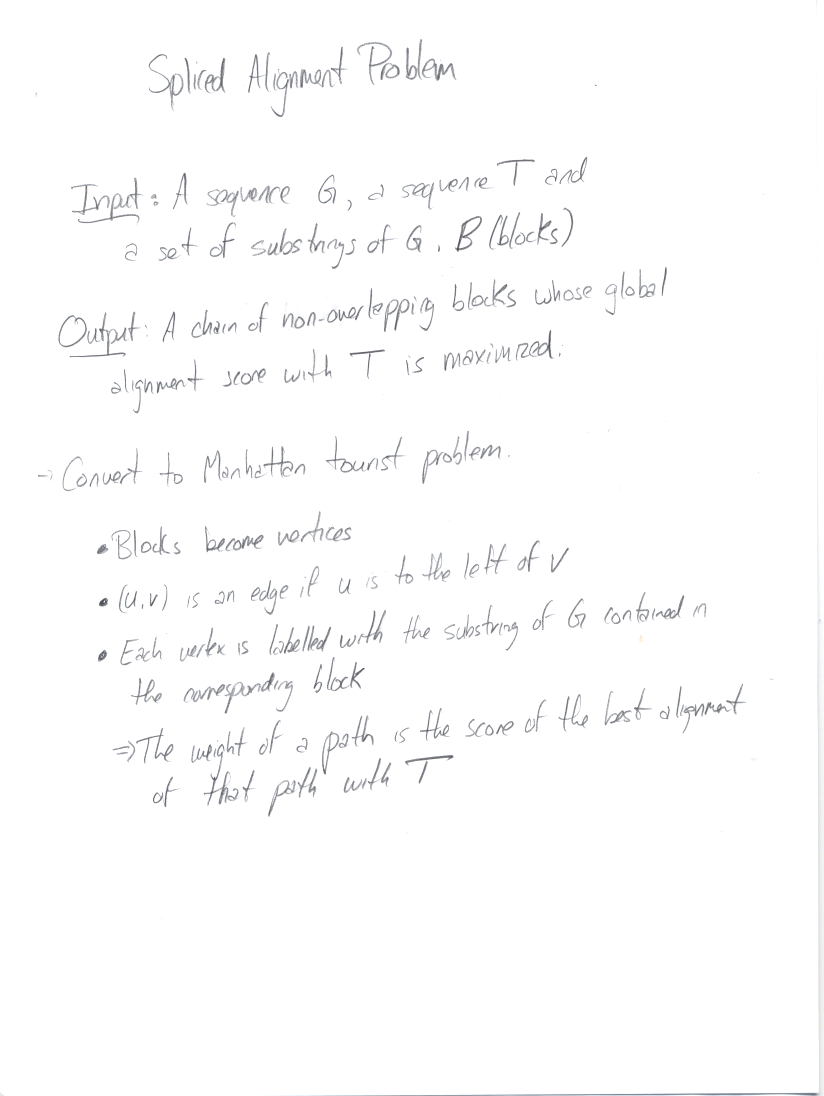 Spliced Alignment Problem
Input: A sequence G, a sequence T and
a set of substrings of G, B (blocks)
Output: A chain of non-overlapping blocks whose global
alignment score with T is maximized.
→ Convert to Manhattan tourist problem.
• Blocks become vertices
• (u,v) is an edge if u is to the left of v
• Each vertex is labelled with the substring of G contained in
the corresponding block
⇒ The weight of a path is the score of the best alignment
of that path with T